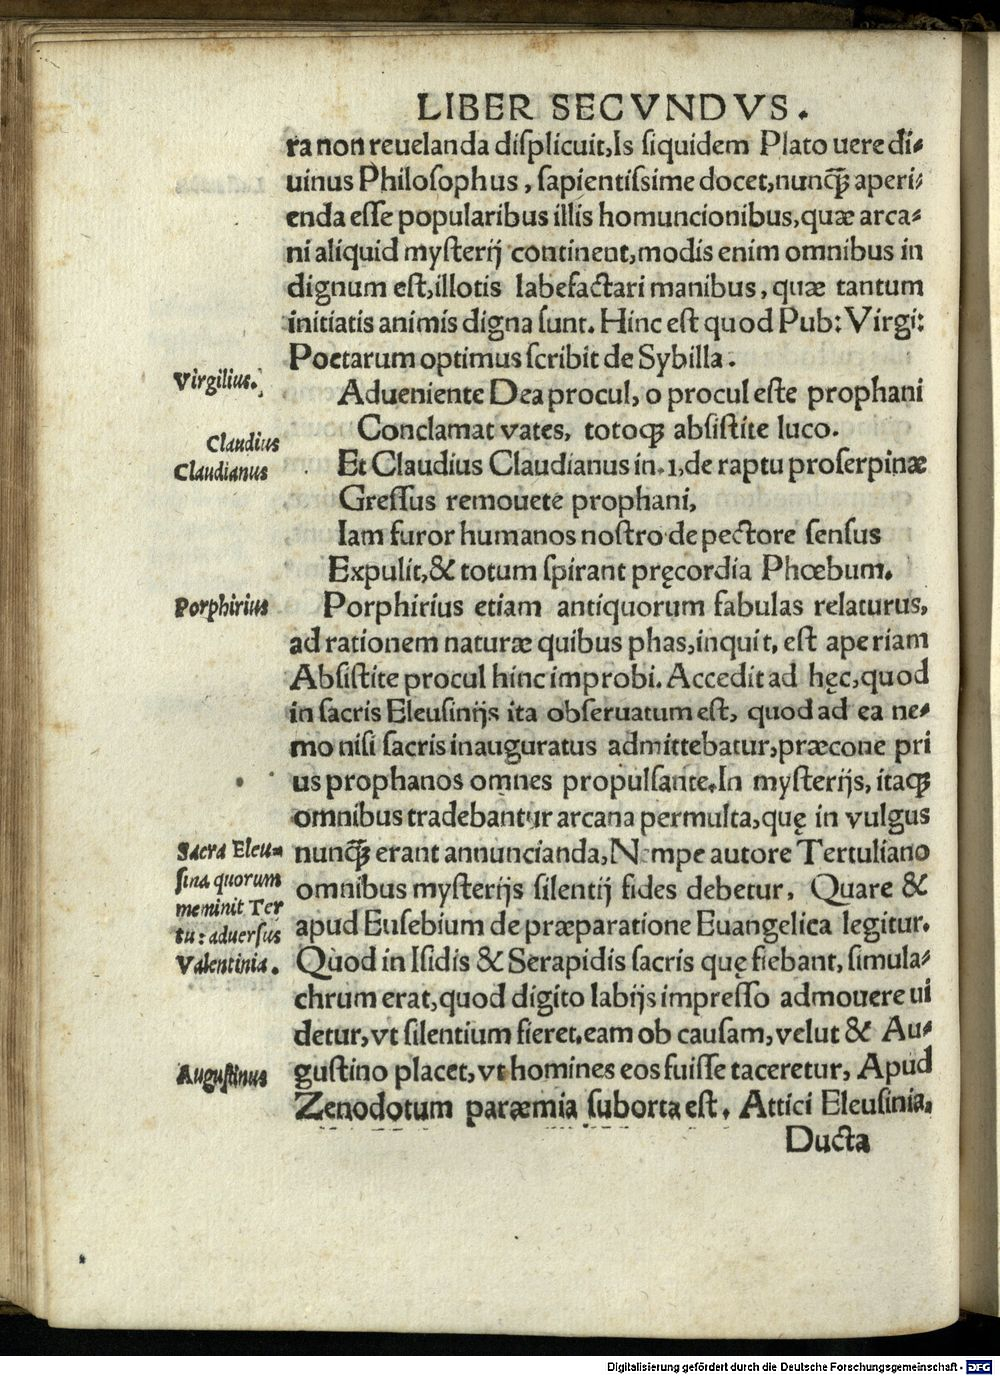 LIBER SECVNDVS.
ra non reuelanda displicuit, Is siquidem Plato uere di-
uinus Philosophus, sapientissime docet, nunq̃ aperi-
enda esse popularibus illis homuncionibus, quæ arca-
ni aliquid mysterij continent, modis enim omnibus in
dignum est, illotis labefactari manibus, quæ tantum
initiatis animis digna sunt. Hinc est quod Pub: Virgi:
Poetarum optimus scribit de Sybilla.
Virgilius.
Adueniente Dea procul, o procul este prophani
Conclamat vates, totoq; absistite luco.
Claudius
Claudianus
Et Claudius Claudianus in .1, de raptu proserpinæ
Gressus remouete prophani,
Iam furor humanos nostro de pectore sensus
Expulit, & totum spirant pręcordia Phœbum.
Porphirius
Porphirius etiam antiquorum fabulas relaturus,
ad rationem naturæ quibus phas, inquit, est aperiam
Absistite procul hinc improbi. Accedit ad hęc, quod
in sacris Eleusinijs ita obseruatum est, quod ad ea ne-
mo nisi sacris inauguratus admittebatur, præcone pri
us prophanos omnes propulsante. In mysterijs, itaq;
omnibus tradebantur arcana permulta, quę in vulgus
nunq̃ erant annuncianda, Nempe autore Tertuliano
Sacra Eleu-
sina quorum
meminit Ter
tu: aduersus
Valentinia.
omnibus mysterijs silentij fides debetur, Quare &
apud Eusebium de præparatione Euangelica legitur.
Quod in Isidis & Serapidis sacris quę fiebant, simula-
chrum erat, quod digito labijs impresso admouere ui
detur, vt silentium fieret, eam ob causam, velut & Au-
gustino placet, vt homines eos fuisse taceretur, Apud
Augustinus
Zenodotum paræmia suborta est. Attici Eleusinia,
Ducta
Digitalisierung gefördert durch die Deutsche Forschungsgemeinschaft - DFG